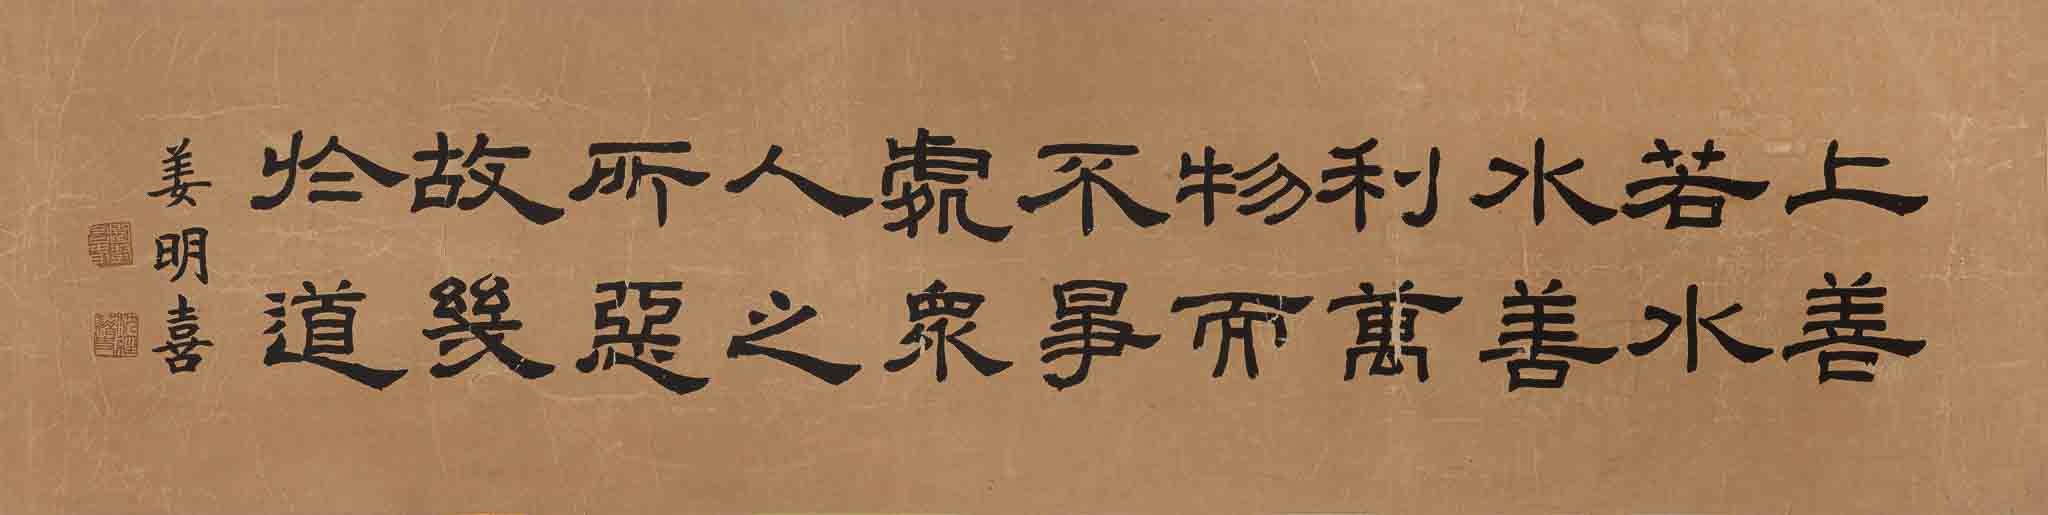 上善
若水
水善
利萬
物而
不爭
處眾
人之
所惡
故幾
於道
姜明喜